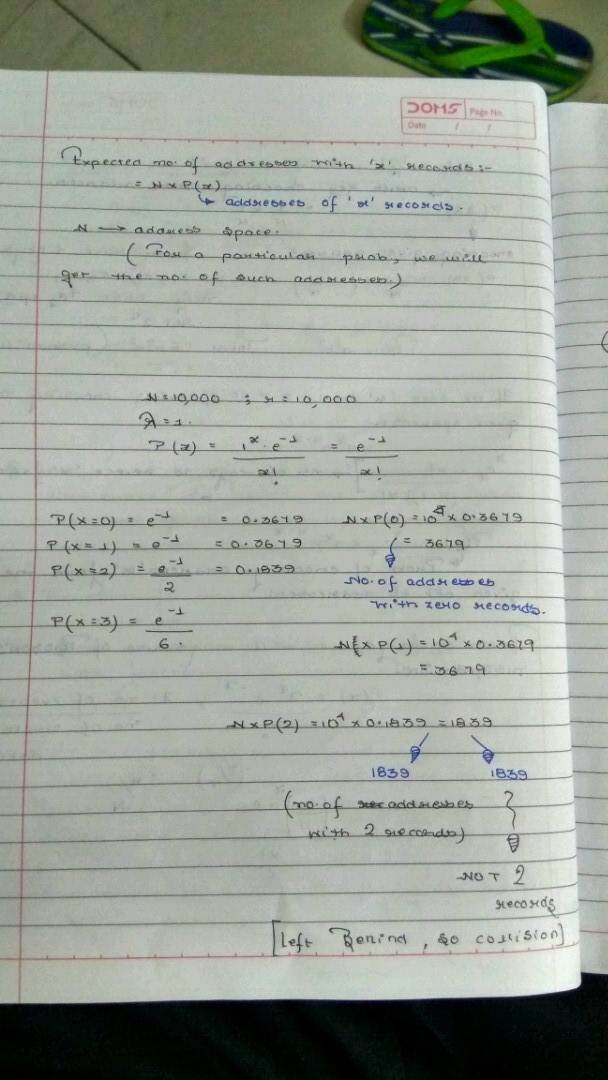 DOMS Page No.
Date / /
Expected no. of addresses with 'x' records :-
= N x P(x)
↳ addresses of 'x' records.
N → address space.
( For a particular prob, we will
get the no. of such addresses.)
N = 10,000 ; r = 10,000
λ = 1.
P(x) = 1^x . e^-1 / x! = e^-1 / x!
P(x=0) = e^-1 = 0.3679 N x P(0) = 10^4 x 0.3679
P(x=1) = e^-1 = 0.3679 = 3679
P(x=2) = e^-1 / 2 = 0.1839 No. of addresses
with zero records.
P(x=3) = e^-1 / 6. N x P(1) = 10^4 x 0.3679
= 3679
N x P(2) = 10^4 x 0.1839 = 1839
1839 1839
(no. of addresses
with 2 records)
NOT 2
records
[Left Behind, so collision]